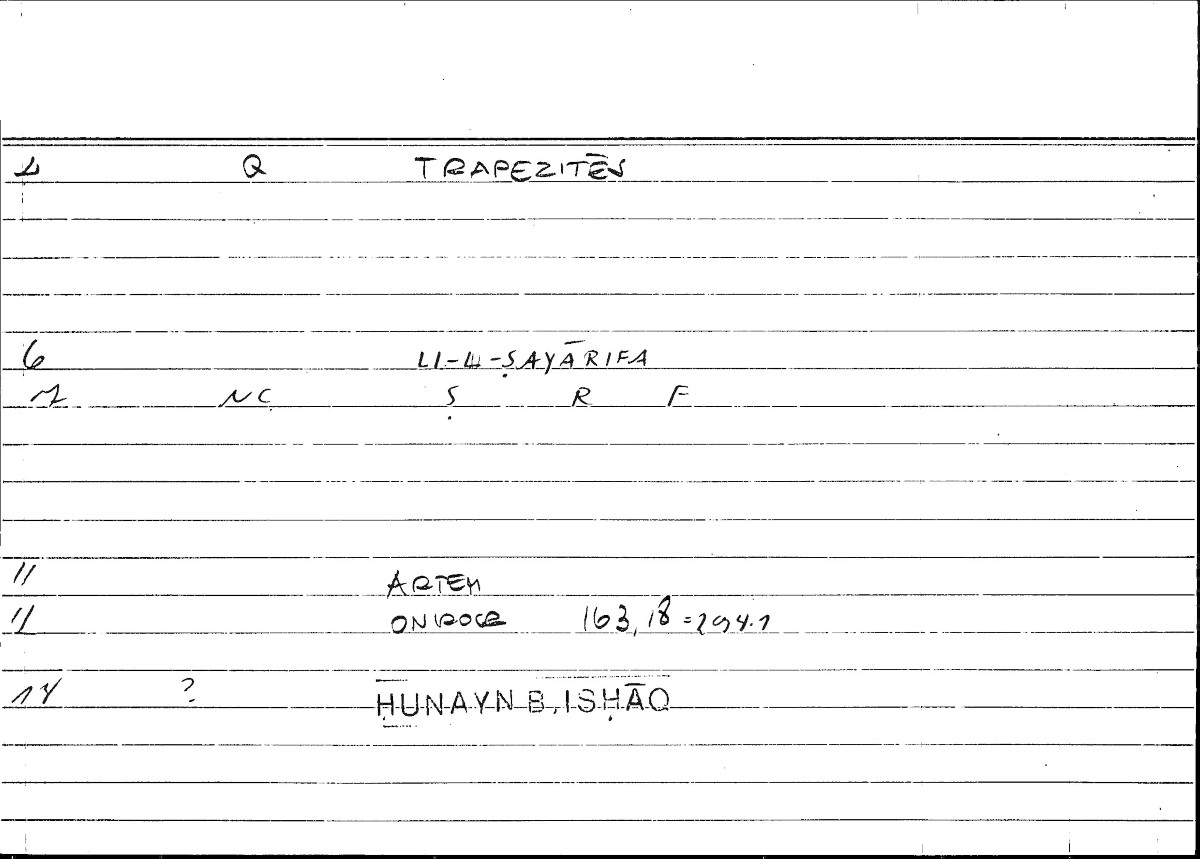 1 Q TRAPEZITĒS
6 LI-L-ṢAYĀRIFA
7 NC Ṣ R F
11 ARTEM
12 ONIROCR 163,18=294.1
14 ? ḤUNAYN B. ISḤĀQ